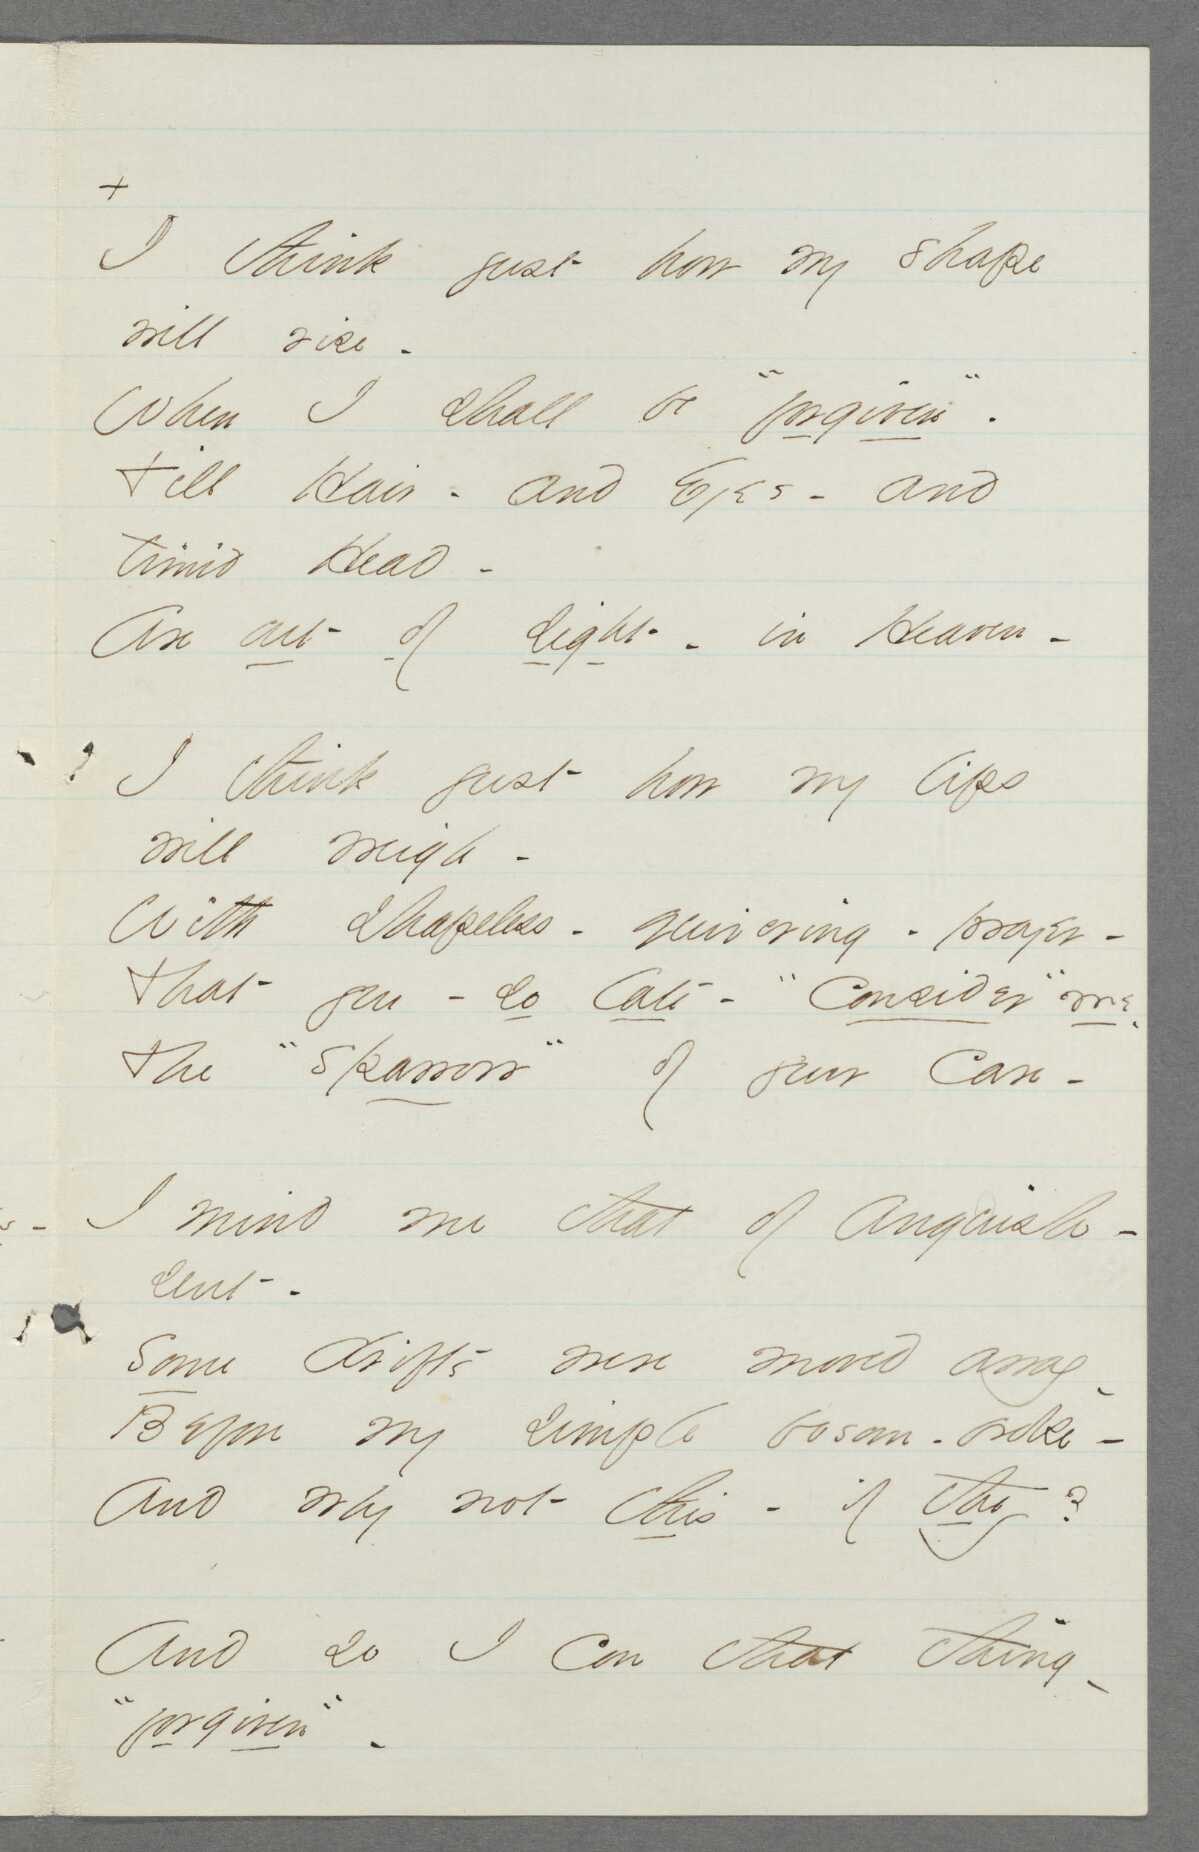 +
I think just how my shape
will rise -
When I shall be "forgiven" -
Till Hair - and Eyes - and
timid Head -
Are out of sight - in Heaven -
I think just how my lips
will weigh -
With shapeless - quivering - prayer -
That you - so late - "Consider" me -
The "Sparrow" of your Care -
I mind me that of Anguish -
sent -
Some drifts were moved away -
Before my simple bosom - broke -
And why not this - if they?
And so I con that thing -
"forgiven" -